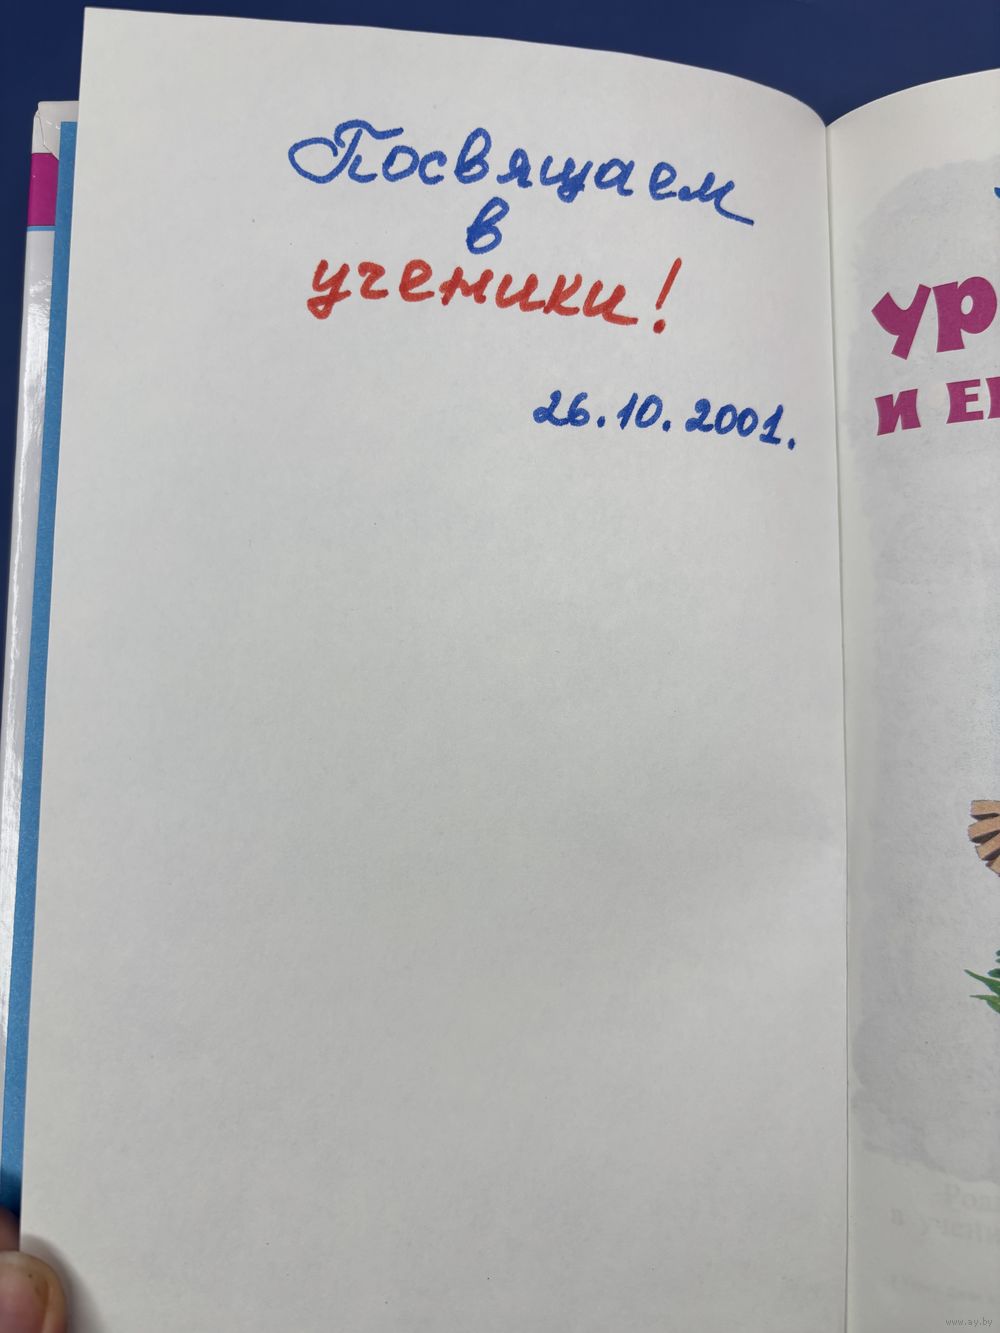 Посвящаем
в
ученики!
26.10.2001.
ур
и ег
www.ay.by